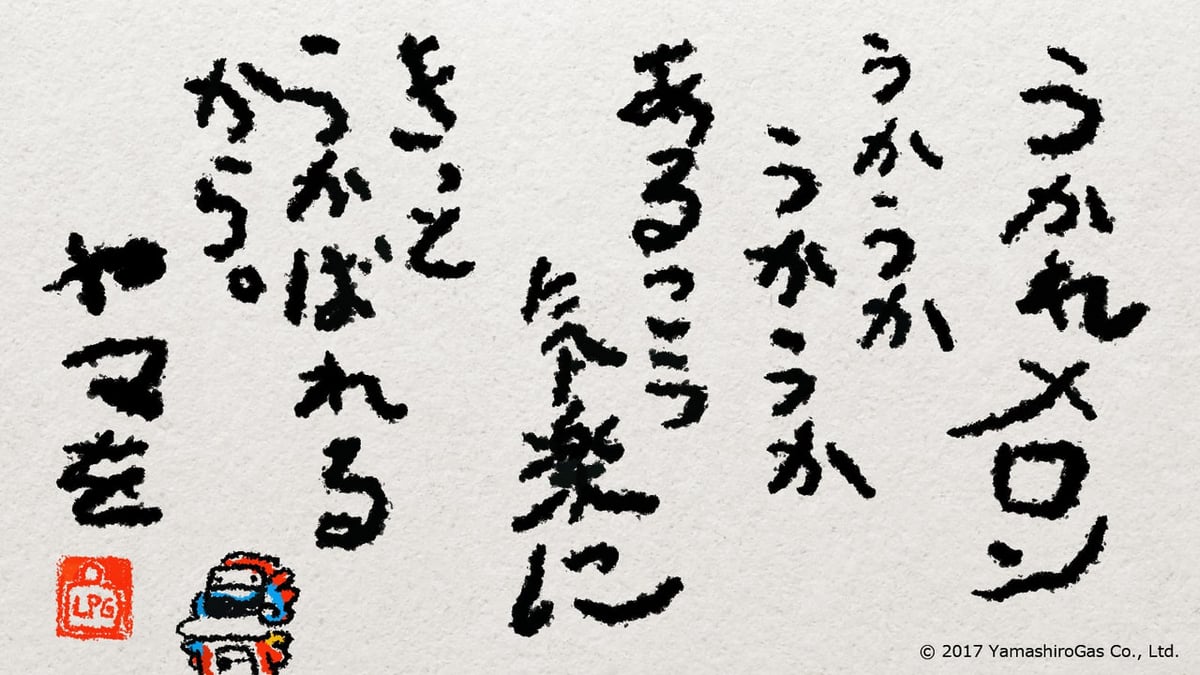 うかれメロン
うかうか
うかうか
あるっこう
気楽に
きっと
うかばれる
から。
やマを
LPG
© 2017 YamashiroGas Co., Ltd.